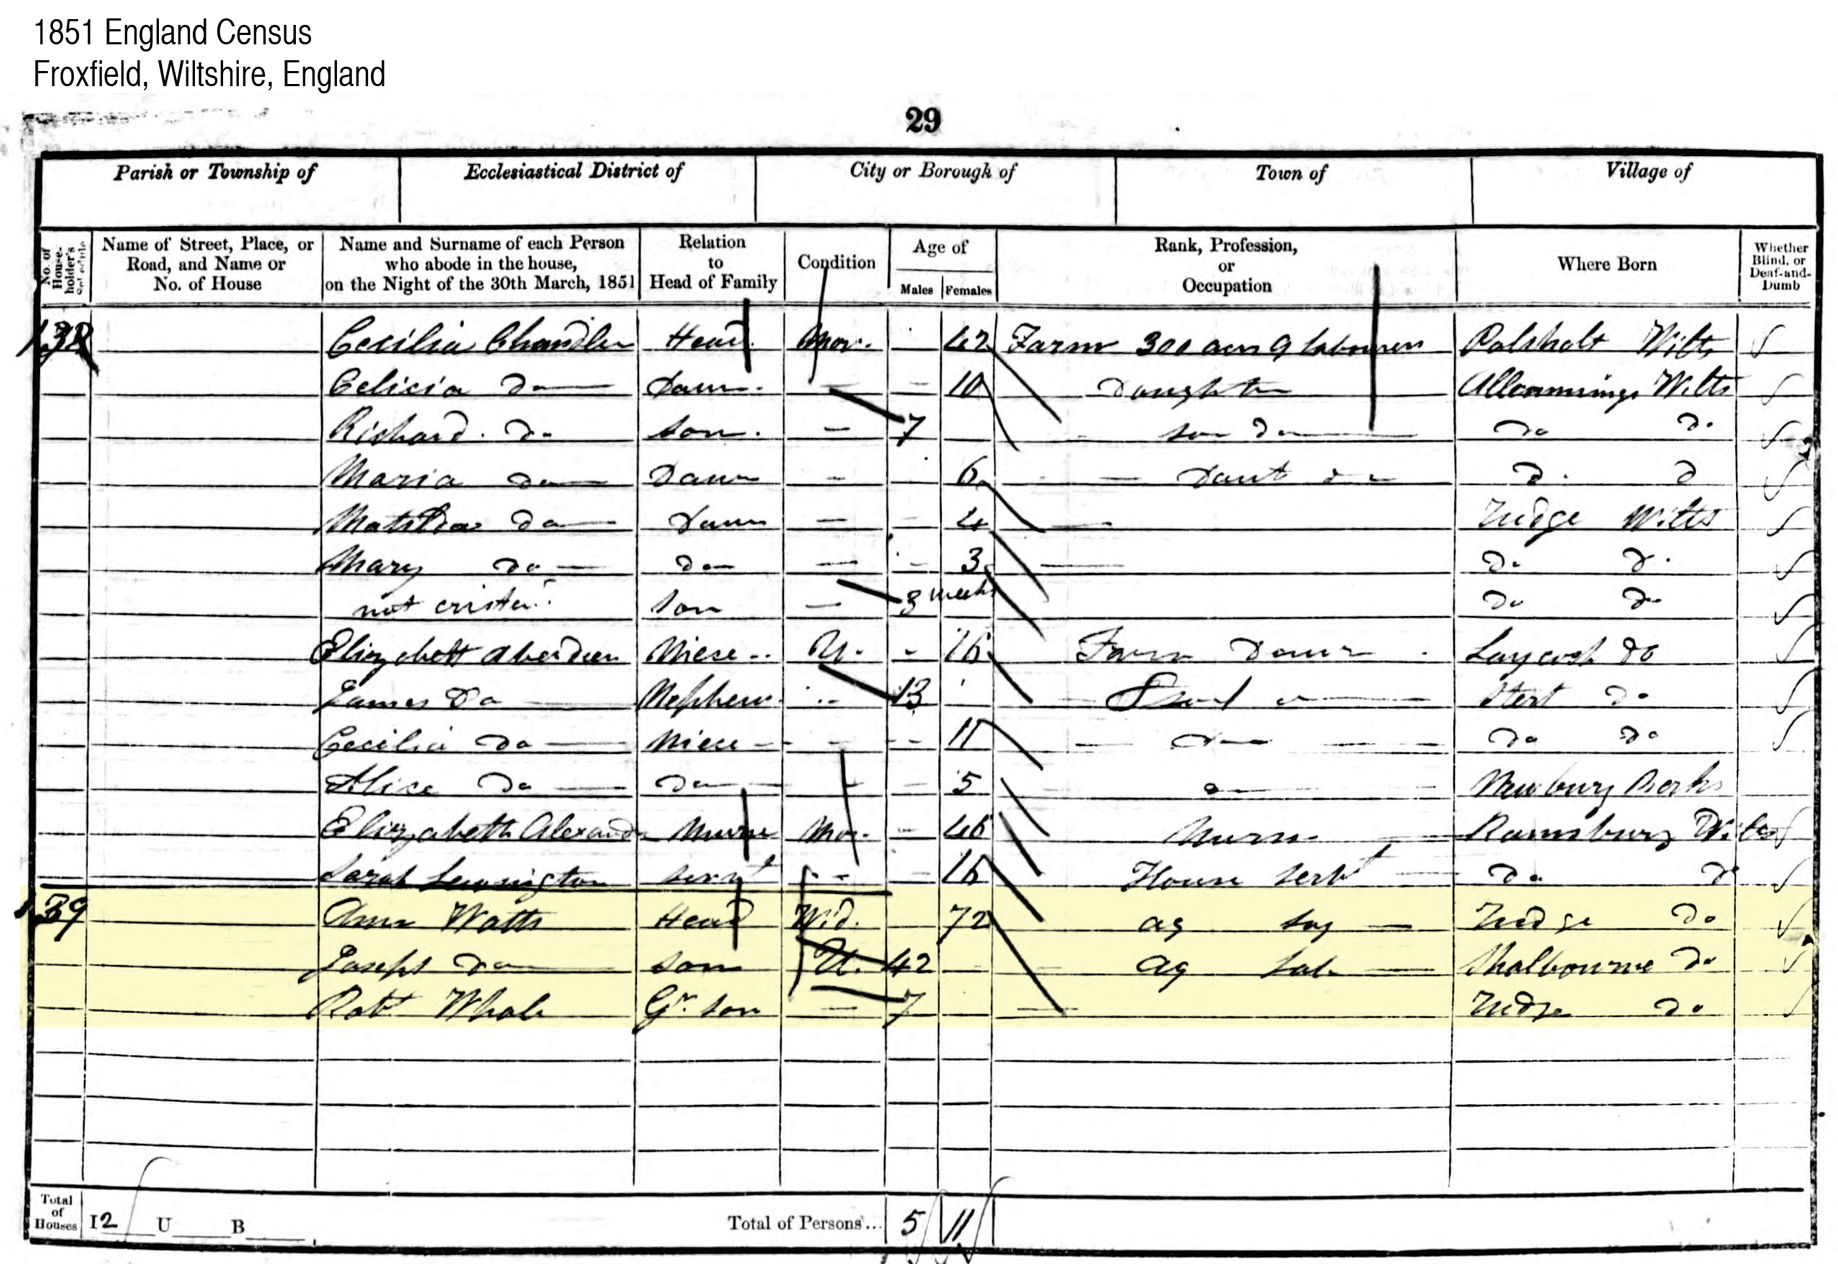 1851 England Census
Froxfield, Wiltshire, England
29
Parish or Township of Ecclesiastical District of City or Borough of Town of Village of
No. of House-holder's Schedule Name of Street, Place, or Road, and Name or No. of House Name and Surname of each Person who abode in the house, on the Night of the 30th March, 1851 Relation to Head of Family Condition Age of Males Females Rank, Profession, or Occupation Where Born Whether Blind, or Deaf-and-Dumb
138 Cecilia Chandler Head Mar. 42 Farm 300 acres 9 labourers Wilts
Do Daur. 10 Daughter Wilts
Richard Do Son 7 Son Do Do Do
Maria Do Daur 6 Daut Do Do
Matilda Do Daur 4 Tudge Wilts
Mary Do Do 3 Do Do
not Son 3 weeks Do Do
Elizabeth Aberdeen Niese U. 16 Farm Daur Do
James Do Nephew 13 Stert Do
Cecilia Do Niece 11 Do Do Do
Alice Do Do 5 Newbury Berks
Elizabeth Nurse Mar. 46 Nurse Ramsbury Wilts
Sarah servt 16 House servt Do Do
139 Ann Watts Head Wid. 72 ag Tudge Do
Joseph Do Son U. 42 ag lab Shalbourne Do
Robt Whale Gr. Son 7 Tudge Do
Total of Houses 12 U B Total of Persons... 5 11